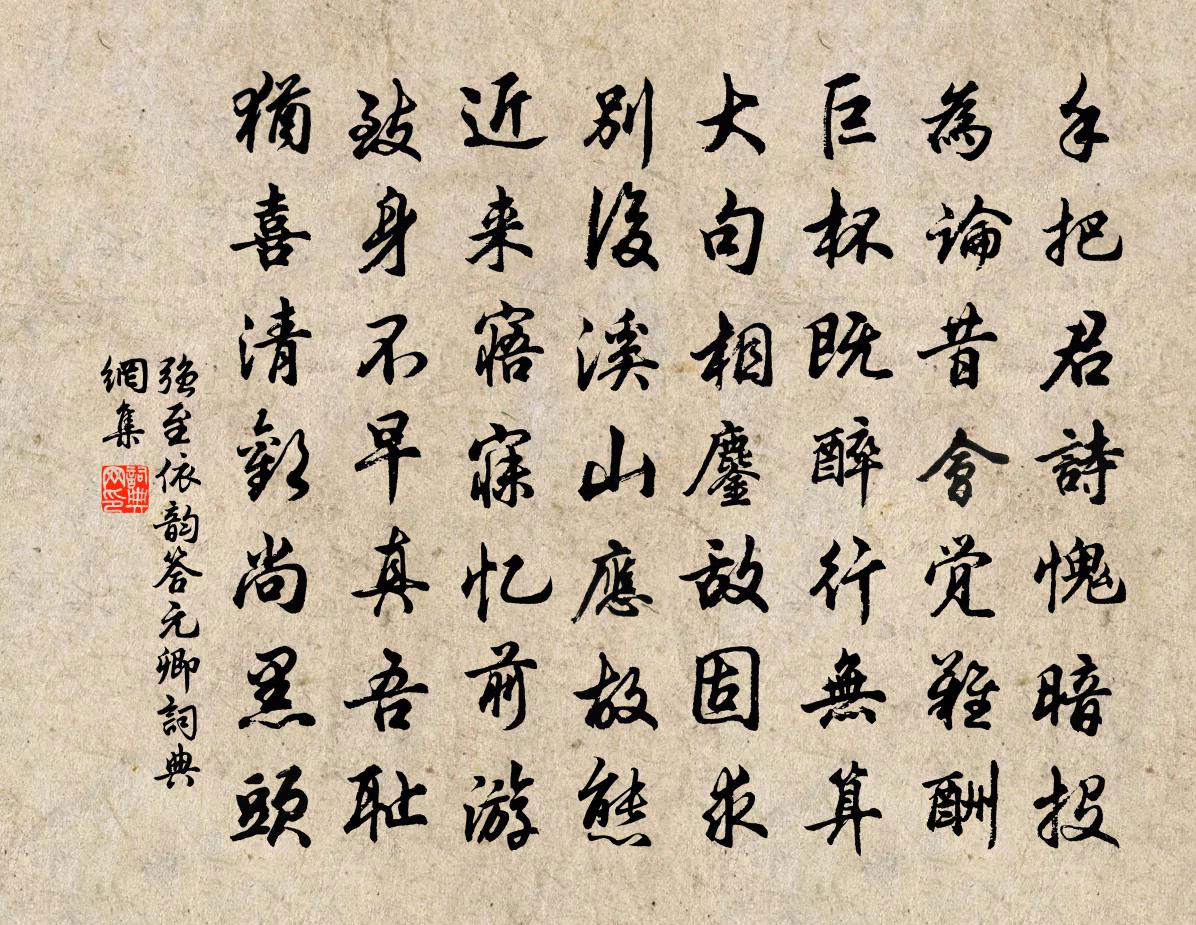 手把君詩愧暗投
為論昔會覚難酬
巨杯既醉行無算
大句相鏖敌固求
別後溪山應故態
近来寤寐忆前游
致身不早真吾耻
猶喜清歡尚黑頭
強至依韵答元卿詞典
網集
詞典網印